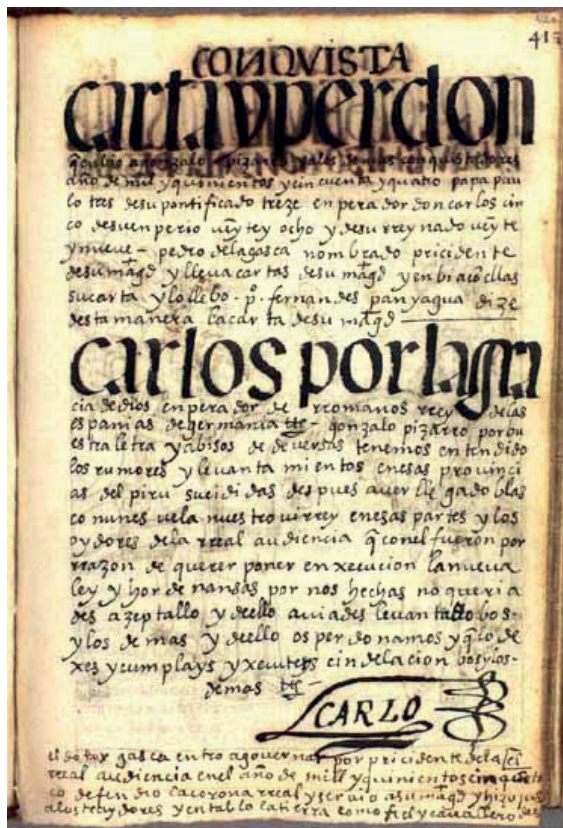 413
CONQVISTA
carta y perdon
q̃ enbio a gonzalo pizarro y a los demas conquistadores
año de mil y quinientos y cincuenta y quatro papa pau
lo tres de su pontificado treze enperador don carlos cin
co de su enperio ueyte y ocho y de su rreynado ueyte
y nueue – pedro de la gasca nombrado pricidente
de su mag̃d y lleua cartas de su mag̃d y enbia con ellas
su carta y lo llebo – p.º fernandes panyagua dize
desta manera la carta de su mag̃d
carlos por la gra
cia de dios enperador de rromanos rrey de las
españas de germania ttê – gonzalo pizarro por bu
estra letra y abisos de deuersas tenemos entendido
los rumores y leuantamientos en esas prouinci
as del piru suceididas despues auer llegado blas
co nunes uela nuestro uirrey en esas partes y los
oydores de la rreal audiencia q̃ con el fueron por
rrazon de querer poner en xecucion la nueua
ley y hordenansas por nos hechas no queria
des azeptallo y dello auiades leuantado bos
y los demas y dello os perdonamos y q̃ lo de
xes y cumplays y xecuteys cin delacion bos y los
demas ttê
CARLO
el dotor gasca entro a gouernar por pricidente de la
rreal audiencia en el año de mill y quinientos
co defendio la corona rreal y seruio a su mag̃d y hizo
a los tray dores y entablo la tierra como fiel y cauallero